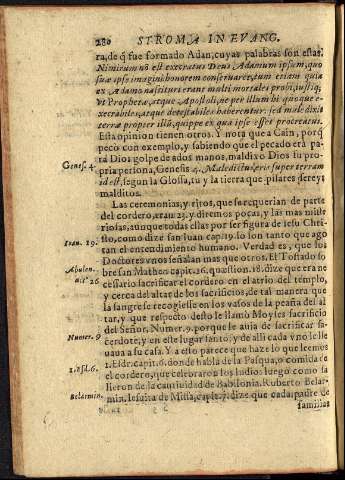 280 STROMA IN EVANG.
ra, de q̃ fue formado Adan, cuyas palabras son estas.
Nimirum nõ est execratus Deus Adamum ipsum, quo
suæ ipse imagini honorem conservaret, tum etiam quia
ex Adamo nascituri erant multi mortales probi, iustiq;
ut Prophetæ, atque Apostoli, ne per illum hi quoque e-
xecrabiles, atque detestabiles haberentur: sed maledixit
terræ propter illũ, quippe ex qua ipse esset procreatus.
Esta opinion tienen otros. Y nota que a Cain, porq̃
pecò con exemplo, y sabiendo que el pecado era pa-
Genes. 4. ra Dios golpe de a dos manos, maldixo Dios su pro-
pria persona, Genesis 4. Maledictus eris super terram
id est, segun la Glossa, tu y la tierra que pisares sereys
malditos.
Las ceremonias, y ritos, que se requerian de parte
del cordero, eran 23. y diremos pocas, y las mas miste
riosas, aunque todas ellas por ser figura de Iesu Chri-
Ioan. 19. sto, como dize san Iuan cap. 19. lo son tanto que ago
tan el entendimiento humano. Verdad es, que los
Doctores vnos señalan mas que otros. El Tostado so
Abulen. bre san Matheo capit. 26. question. 18. dize que era ne
sis 26 cessario sacrificar el cordero en el atrio del templo,
y cerca del altar de los sacrificios, de tal manera que
la sangre se recogiesse en los vasos de la peaña del al
tar, y que respecto desto le llamò Moyses sacrificio
Numer. 9 del Señor. Numer. 9. porque le auia de sacrificar sa-
cerdote, y en este lugar santo, y de alli cada vno le lle
uaua a su casa. Y a esto parece que haze lo que leemos
1. Esd. 6. 1. Esdr. capit. 6. donde habla de la Pasqua, o comida de
el cordero, que celebraron los Iudios luego como sa
lieron de la cautiuidad de Babilonia. Roberto Belar-
Belarmin. min. Iesuita de Missa, capit. 7. dize que cada padre de
familias